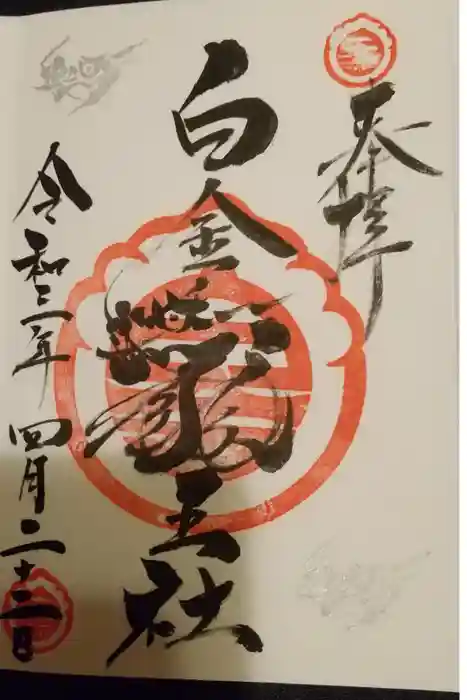 奉拝
白金龍王社
令和三年四月二十二日